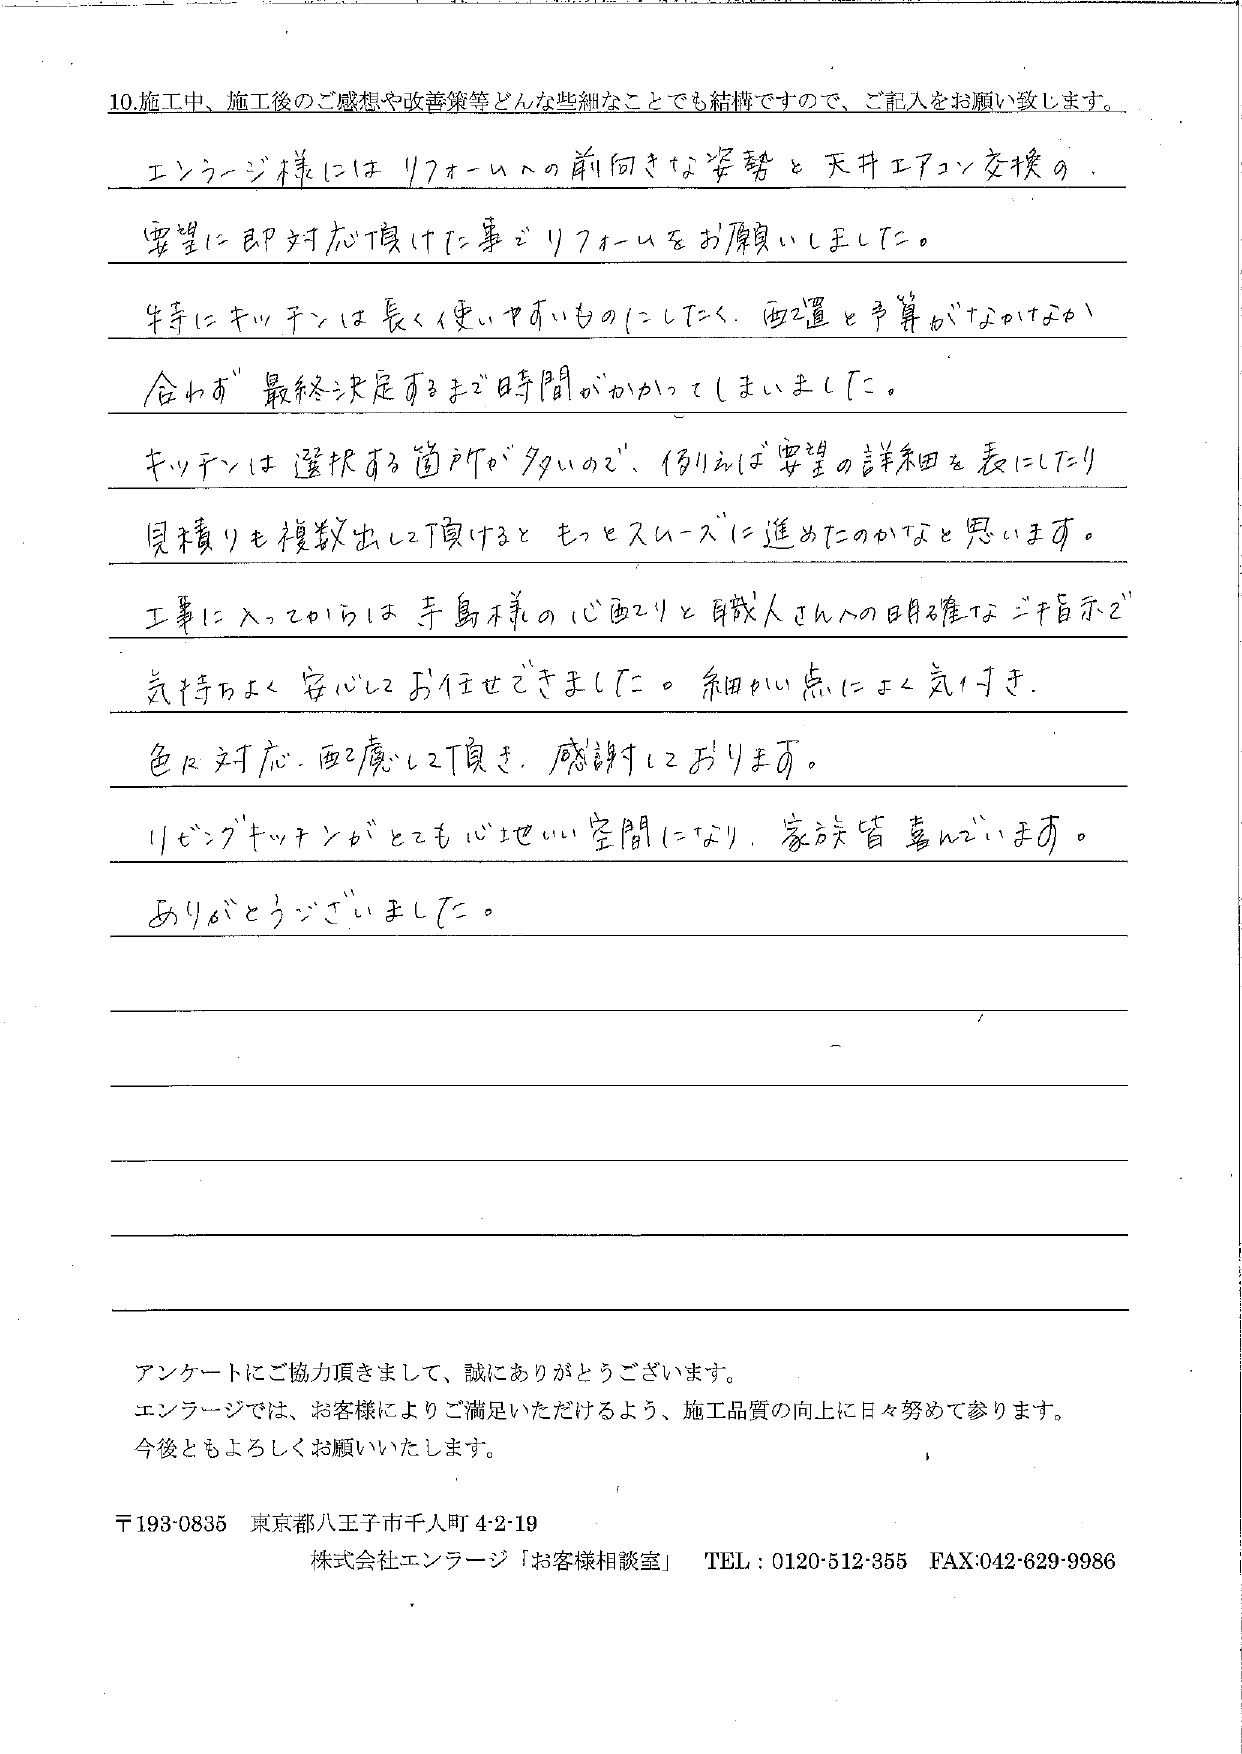 10.施工中、施工後のご感想や改善策等どんな些細なことでも結構ですので、ご記入をお願い致します。
エンラージ様には リフォームへの前向きな姿勢と 天井エアコン交換の
要望に即対応頂けた事で リフォームをお願いしました。
特にキッチンは長く使いやすいものにしたく、配置と予算がなかなか
合わず 最終決定するまで時間がかかってしまいました。
キッチンは 選択する箇所が多いので、例えば要望の詳細を表にしたり
見積りも複数出して頂けると もっとスムーズに進めたのかなと思います。
工事に入ってからは 寺島様の心配りと職人さんへの明確なご指示で
気持ちよく 安心してお任せできました。細かい点によく気付き、
色々対応、配慮して頂き、感謝しております。
リビングキッチンがとても心地いい空間になり、家族皆 喜んでいます。
ありがとうございました。
アンケートにご協力頂きまして、誠にありがとうございます。
エンラージでは、お客様によりご満足いただけるよう、施工品質の向上に日々努めて参ります。
今後ともよろしくお願いいたします。
〒193-0835 東京都八王子市千人町 4-2-19
株式会社エンラージ「お客様相談室」 TEL：0120-512-355 FAX:042-629-9986